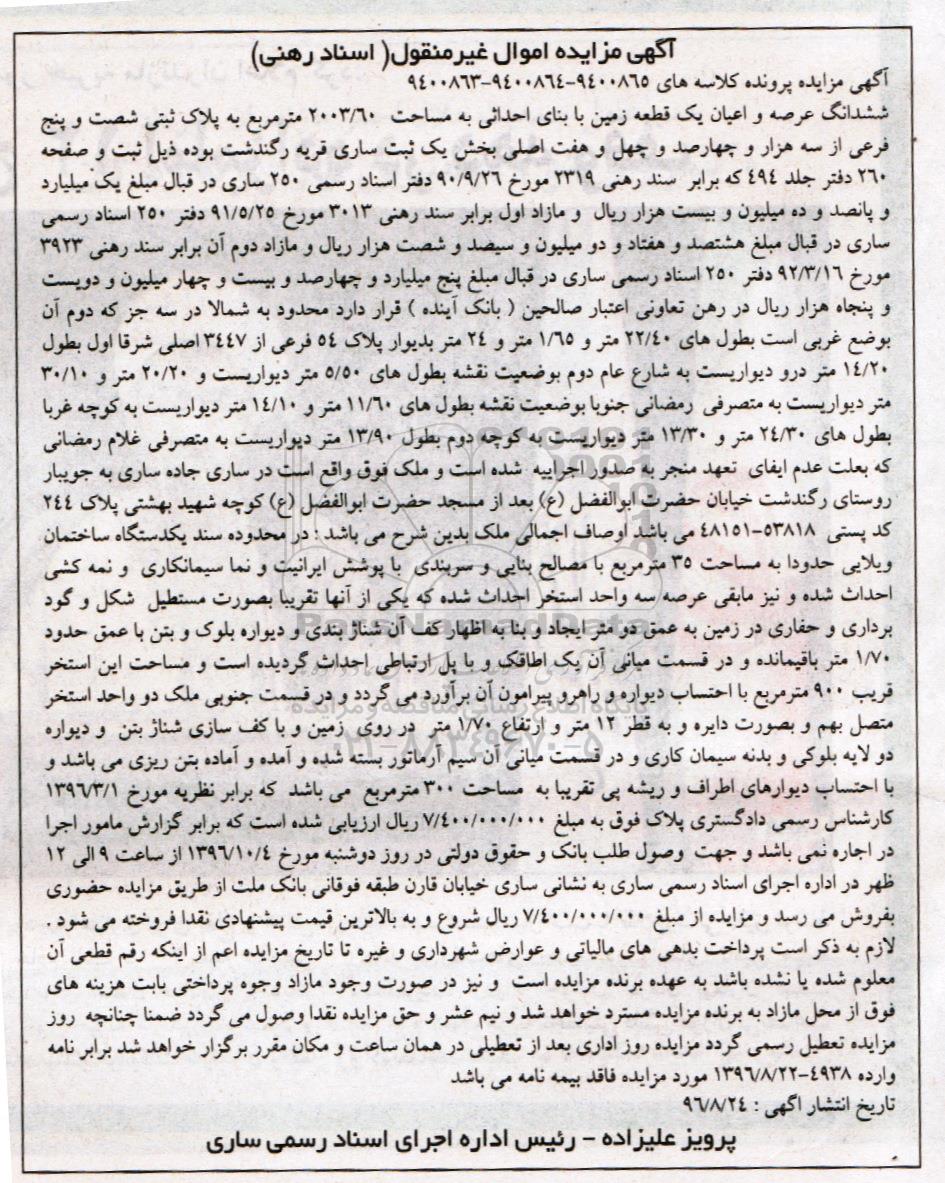 آگهی مزایده اموال غیرمنقول( اسناد رهنی)
آگهی مزایده پرونده کلاسه های ٩٤٠٠٨٦٥-٩٤٠٠٨٦٤-٩٤٠٠٨٦٣
ششدانگ عرصه و اعیان یک قطعه زمین با بنای احداثی به مساحت ٢٠٠٣/٦٠ مترمربع به پلاک ثبتی شصت و پنج
فرعی از سه هزار و چهارصد و چهل و هفت اصلی بخش یک ثبت ساری قریه رگندشت بوده ذیل ثبت و صفحه
٢٦٠ دفتر جلد ٤٩٤ که برابر سند رهنی ٢٣١٩ مورخ ٩٠/٩/٢٦ دفتر اسناد رسمی ٢٥٠ ساری در قبال مبلغ یک میلیارد
و پانصد و ده میلیون و بیست هزار ریال و مازاد اول برابر سند رهنی ٣٠١٣ مورخ ٩١/٥/٢٥ دفتر ٢٥٠ اسناد رسمی
ساری در قبال مبلغ هشتصد و هفتاد و دو میلیون و سیصد و شصت هزار ریال و مازاد دوم آن برابر سند رهنی ٣٩٢٣
مورخ ٩٢/٣/١٦ دفتر ٢٥٠ اسناد رسمی ساری در قبال مبلغ پنج میلیارد و چهارصد و بیست و چهار میلیون و دویست
و پنجاه هزار ریال در رهن تعاونی اعتبار صالحین ( بانک آینده ) قرار دارد محدود به شمالا در سه جز که دوم آن
بوضع غربی است بطول های ٢٢/٤٠ متر و ١/٦٥ متر و ٢٤ متر بدیوار پلاک ٥٤ فرعی از ٣٤٤٧ اصلی شرقا اول بطول
١٤/٢٠ متر درو دیواریست به شارع عام دوم بوضعیت نقشه بطول های ٥/٥٠ متر دیواریست و ٢٠/٢٠ متر و ٣٠/١٠
متر دیواریست به متصرفی رمضانی جنوبا بوضعیت نقشه بطول های ١١/٦٠ متر و ١٤/١٠ متر دیواریست به کوچه غربا
بطول های ٢٤/٣٠ متر و ١٣/٣٠ متر دیواریست به کوچه دوم بطول ١٣/٩٠ متر دیواریست به متصرفی غلام رمضانی
که بعلت عدم ایفای تعهد منجر به صدور اجراییه شده است و ملک فوق واقع است در ساری جاده ساری به جویبار
روستای رگندشت خیابان حضرت ابوالفضل (ع) بعد از مسجد حضرت ابوالفضل (ع) کوچه شهید بهشتی پلاک ٢٤٤
کد پستی ٥٣٨١٨-٤٨١٥١ می باشد اوصاف اجمالی ملک بدین شرح می باشد : در محدوده سند یکدستگاه ساختمان
ویلایی حدودا به مساحت ٣٥ مترمربع با مصالح بنایی و سربندی با پوشش ایرانیت و نما سیمانکاری و نمه کشی
احداث شده و نیز مابقی عرصه سه واحد استخر احداث شده که یکی از آنها تقریبا بصورت مستطیل شکل و گود
برداری و حفاری در زمین به عمق دو متر ایجاد و بنا به اظهار کف آن شناژ بندی و دیواره بلوک و بتن با عمق حدود
١/٧٠ متر باقیمانده و در قسمت میانی آن یک اطاقک و با پل ارتباطی احداث گردیده است و مساحت این استخر
قریب ٩٠٠ مترمربع با احتساب دیواره و راهرو پیرامون آن برآورد می گردد و در قسمت جنوبی ملک دو واحد استخر
متصل بهم و بصورت دایره و به قطر ١٢ متر و ارتفاع ١/٧٠ متر در روی زمین و با کف سازی شناژ بتن و دیواره
دو لایه بلوکی و بدنه سیمان کاری و در قسمت میانی آن سیم آرماتور بسته شده و آمده و آماده بتن ریزی می باشد و
با احتساب دیوارهای اطراف و ریشه پی تقریبا به مساحت ٣٠٠ مترمربع می باشد که برابر نظریه مورخ ١٣٩٦/٣/١
کارشناس رسمی دادگستری پلاک فوق به مبلغ ٧/٤٠٠/٠٠٠/٠٠٠ ریال ارزیابی شده است که برابر گزارش مامور اجرا
در اجاره نمی باشد و جهت وصول طلب بانک و حقوق دولتی در روز دوشنبه مورخ ١٣٩٦/١٠/٤ از ساعت ٩ الی ١٢
ظهر در اداره اجرای اسناد رسمی ساری به نشانی ساری خیابان قارن طبقه فوقانی بانک ملت از طریق مزایده حضوری
بفروش می رسد و مزایده از مبلغ ٧/٤٠٠/٠٠٠/٠٠٠ ریال شروع و به بالاترین قیمت پیشنهادی نقدا فروخته می شود .
لازم به ذکر است پرداخت بدهی های مالیاتی و عوارض شهرداری و غیره تا تاریخ مزایده اعم از اینکه رقم قطعی آن
معلوم شده یا نشده باشد به عهده برنده مزایده است و نیز در صورت وجود مازاد وجوه پرداختی بابت هزینه های
فوق از محل مازاد به برنده مزایده مسترد خواهد شد و نیم عشر و حق مزایده نقدا وصول می گردد ضمنا چنانچه روز
مزایده تعطیل رسمی گردد مزایده روز اداری بعد از تعطیلی در همان ساعت و مکان مقرر برگزار خواهد شد برابر نامه
وارده ٤٩٣٨-١٣٩٦/٨/٢٢ مورد مزایده فاقد بیمه نامه می باشد
تاریخ انتشار اگهی : ٩٦/٨/٢٤
پرویز علیزاده - رئیس اداره اجرای اسناد رسمی ساری
ParsNamadData
پایگاه اطلاع رسانی مناقصه و مزایده
٠٢١-٨٨٣٤٩٦٧٠-٥